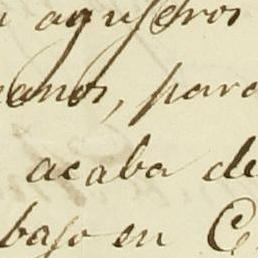 agujeros
manos, para
acaba de
bajo en C